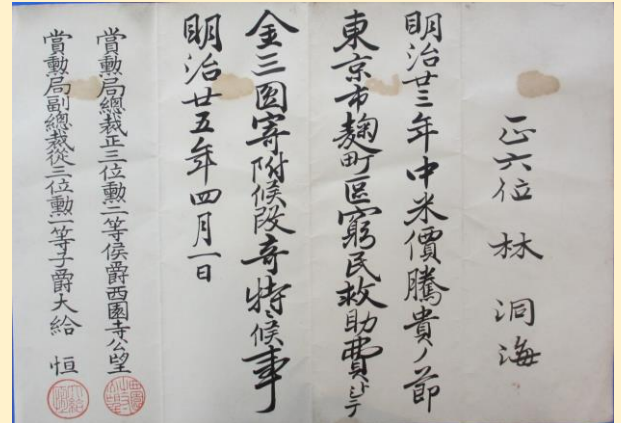 正六位 林 洞海
明治廿三年中米價騰貴ノ節
東京市麹町區窮民救助費トシテ
金三圓寄附候段奇特ニ候事
明治廿五年四月一日
賞勲局總裁正三位勲二等侯爵西園寺公望
賞勲局副總裁從三位勲一等子爵大給 恒